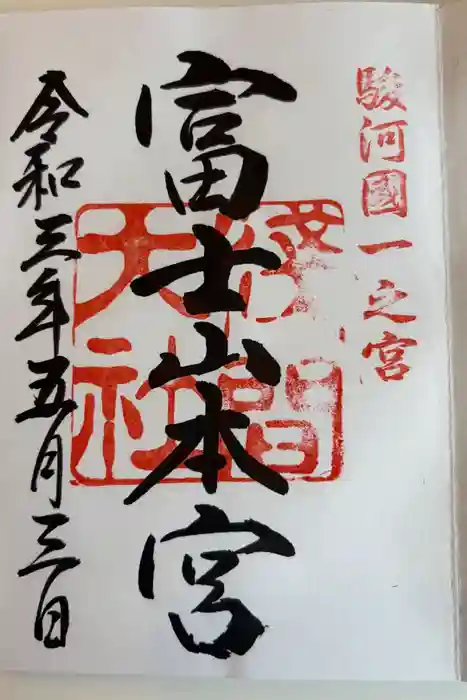 駿河國一之宮
富士山本宮
浅間大社
令和三年五月三日